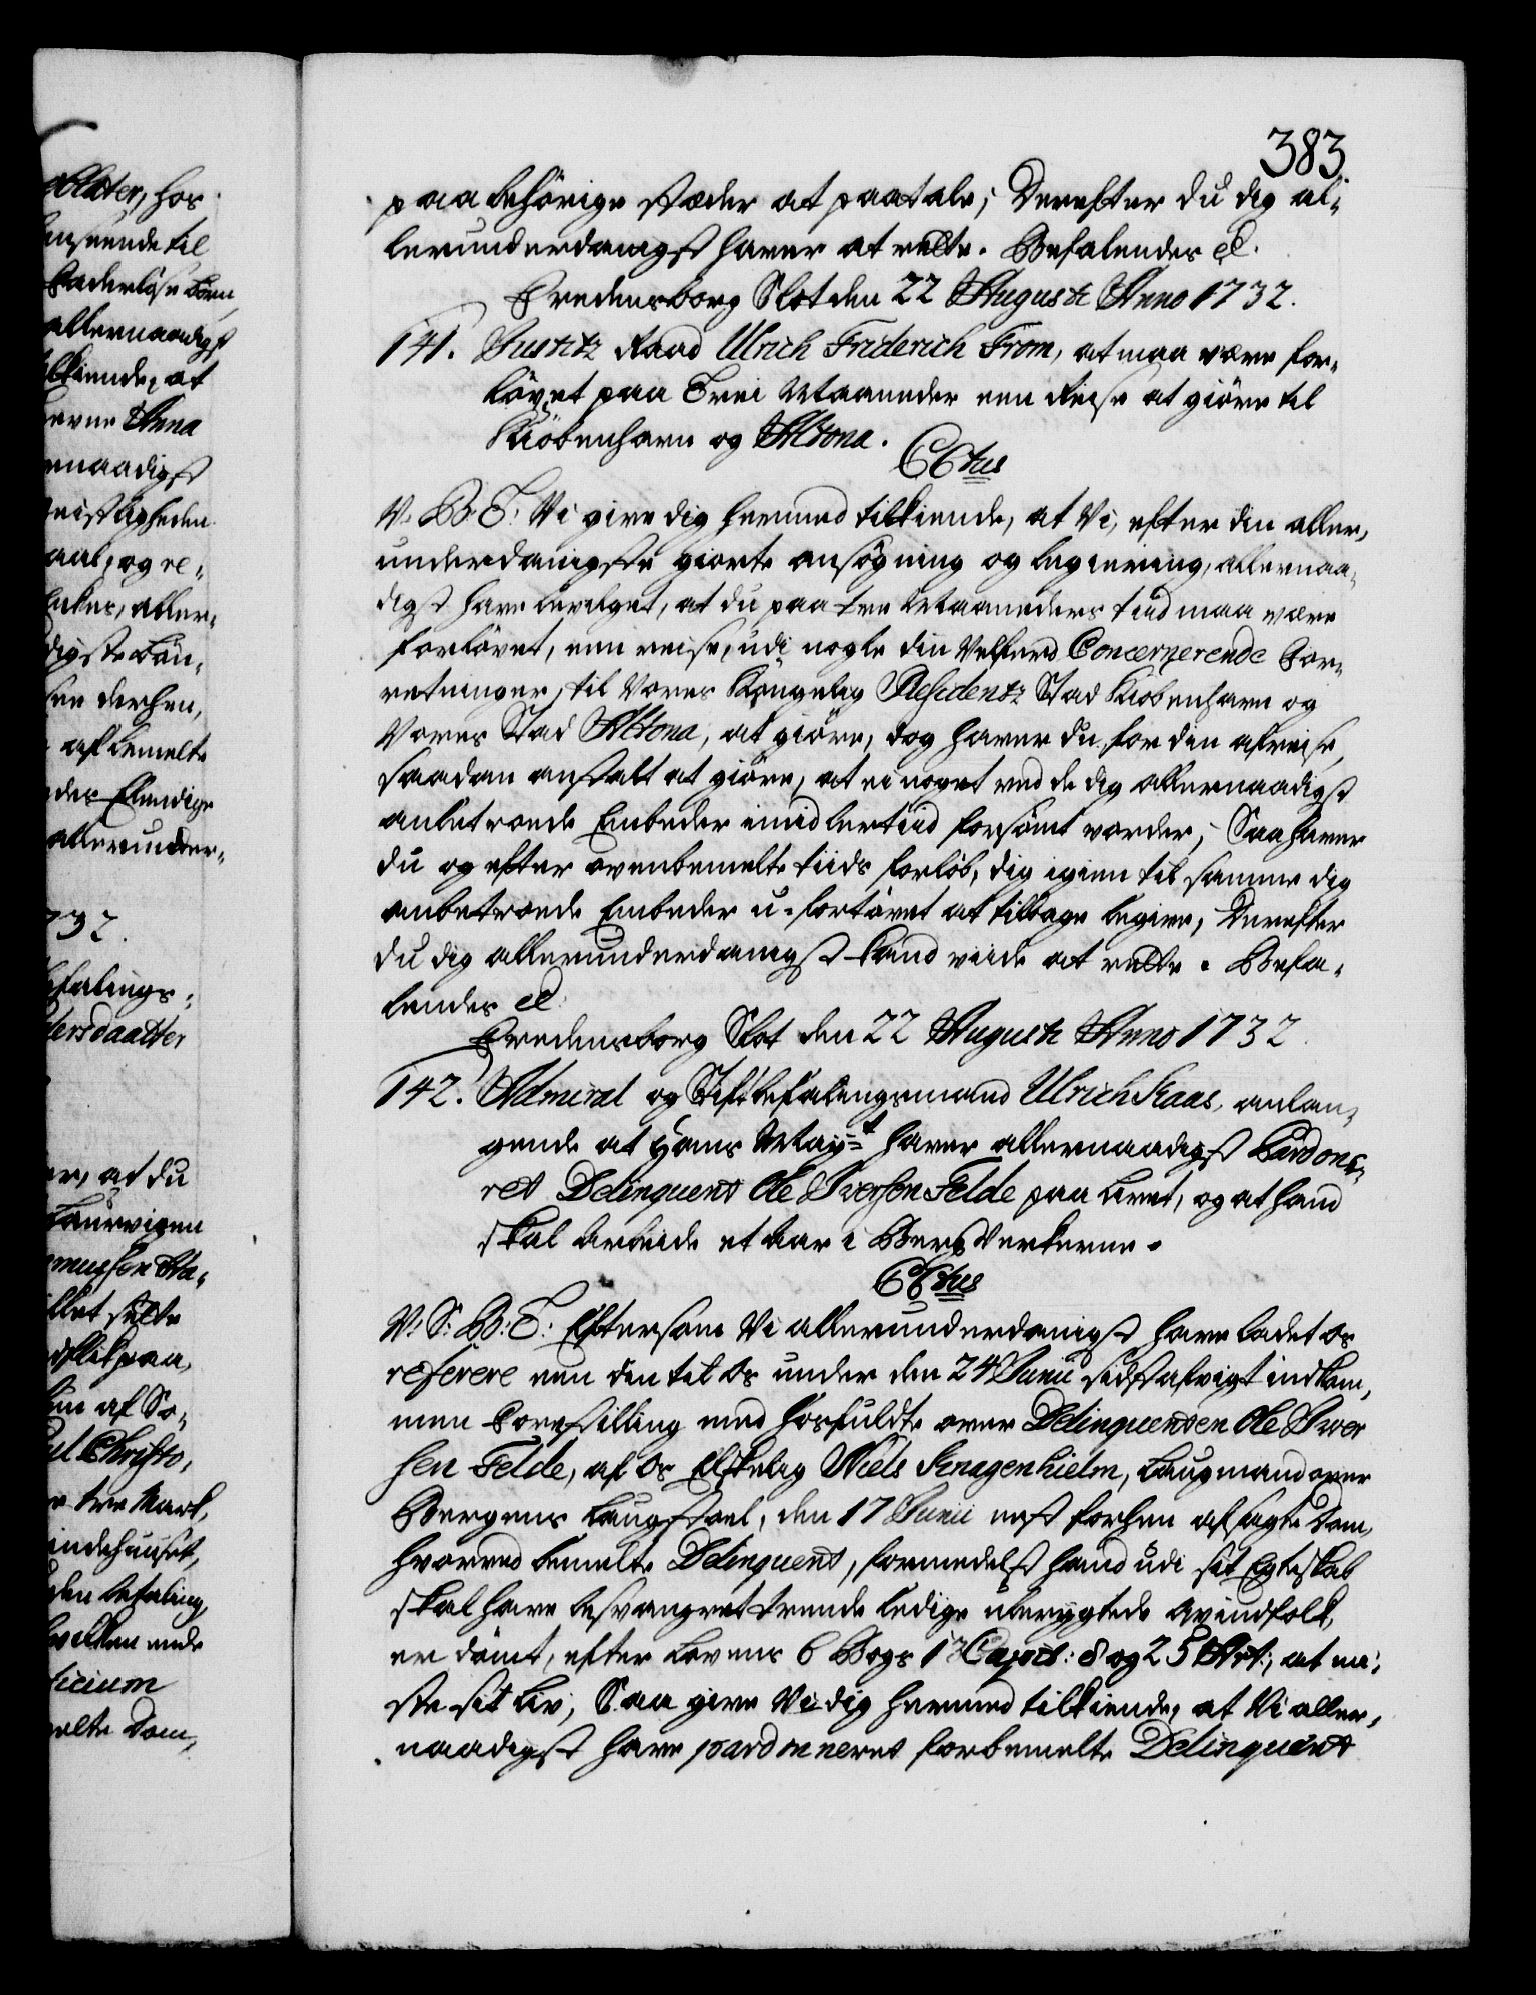 383
paa behörige stæder at paatale; Derefter du dig al-
lerunderdanigst haver at rette. Befalendes etc.
Fredensborg Slot den 22 Augusti Anno 1732.
141. Justitz Raad Ulrich Friderich From, at maa være for-
lövet paa Trei Maaneder een Reise at giöre til
Kiöbenhavn og Altona.
CCtus
V. B. T. Vi give dig hermed tilkiende, at Vi, efter din aller-
underdanigste giorte ansögning og begiering, allernaa-
digst have bevilget, at du paa tre Maaneders tiid maa være
forlövet, een reise, udi nogle din Velferd Concernerende For-
retninger, til Vores Kongelig Residentz Stad Kiöbenhavn og
Vores Stad Altona, at giöre, dog haver du, for din afreise,
saadan anstalt at giöre, at ei noget ved de dig allernaadigst
anbetroede Embeder imidlertiid forsömt vorder; Saa haver
du og efter ovenbemelte tiids forlöb, dig igien til samme dig
anbetroede Embeder u-fortövet at tilbage begive, Derefter
du dig allerunderdanigst kand viide at rette. Befa-
lendes etc.
Fredensborg Slot den 22 Augusti Anno 1732
142. Admiral og Stiftbefalingsmand Ulrich Kaas, anlan-
gende at Hans Mayt haver allernaadigst Pardone-
ret Delinquent Ole Iversen Felde paa livet, og at hand
skal arbeide et Aar i BergVerkerne.
CCtus
V. S. B. T. Eftersom Vi allerunderdanigst have ladet os
referere een den til Os under den 24 Junii sidst afvigt indkom-
men Forestilling med hosfuldte over Delinquenten Ole Iver
sen Felde, af Os Elskelig Niels Knagenhielm, Laugmand over
Bergens Laugstoel, den 17 Junii nest forhen afsagte Dom,
hvorved bemelte Delinquent, formedelst hand udi sit Egteskab
skal have besvangret trende ledige uberygtede qvindfolk,
er dömt, efter Lovens 6 Bogs 13 Capit: 8 og 25 Art:, at mi-
ste sit Liv; Saa give Vi dig hermed tilkiende, at Vi aller-
naadigst have pardonneret forbemelte Delinquent